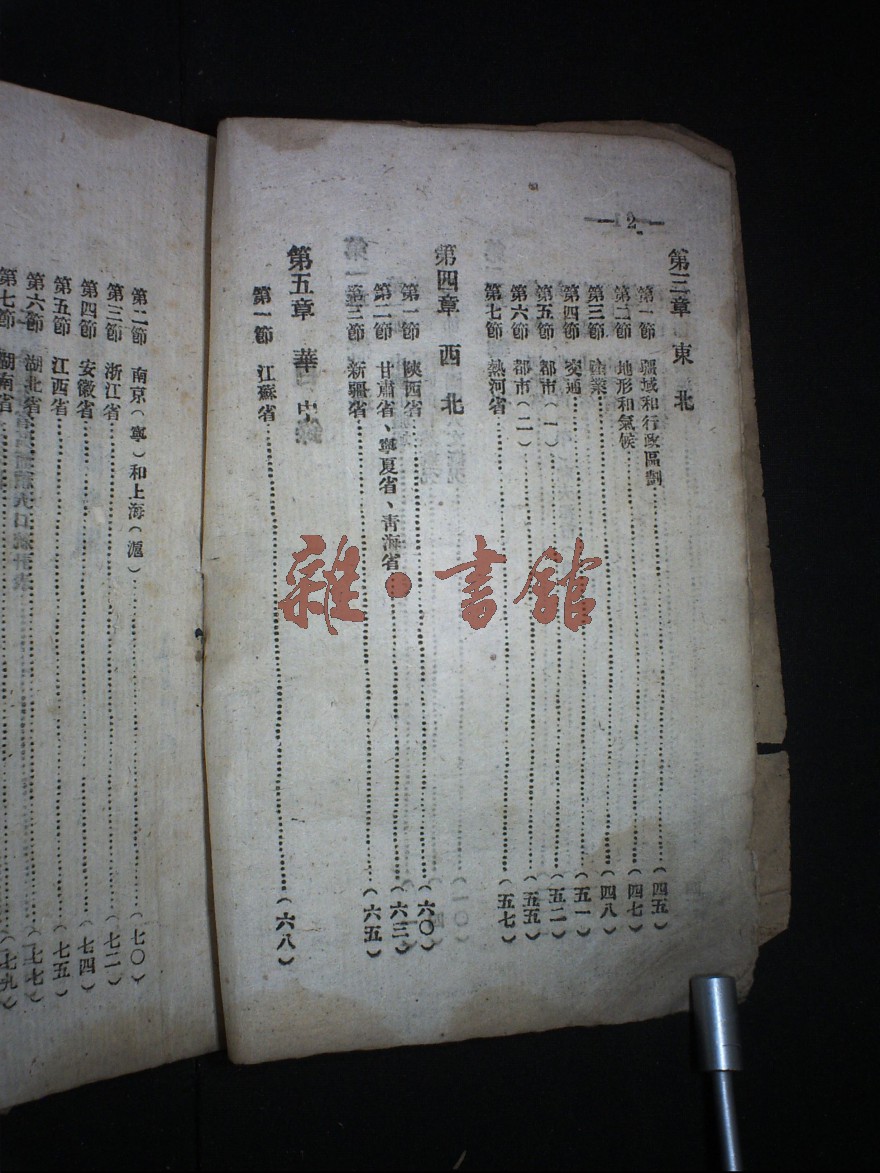 —2—
第三章 東北
第一節 疆域和行政區劃……(四五)
第二節 地形和氣候……(四七)
第三節 產業……(四八)
第四節 交通……(五一)
第五節 都市(一)……(五二)
第六節 都市(二)……(五五)
第七節 熱河省……(五七)
第四章 西北
第一節 陝西省……(六〇)
第二節 甘肅省、寧夏省、青海省……(六三)
第三節 新疆省……(六五)
第五章 華中
第一節 江蘇省……(六八)
第二節 南京(寧)和上海(滬)……(七〇)
第三節 浙江省……(七二)
第四節 安徽省……(七四)
第五節 江西省……(七五)
第六節 湖北省……(七七)
第七節 湖南省……(七九)
雜·書館